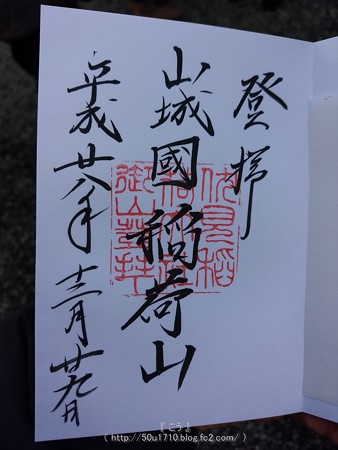 登拝
山城國稲荷山
平成廿八年十二月廿九日
伏見稲
御山登拝
『 こう 』
( http://50u1710.blog.fc2.com/ )